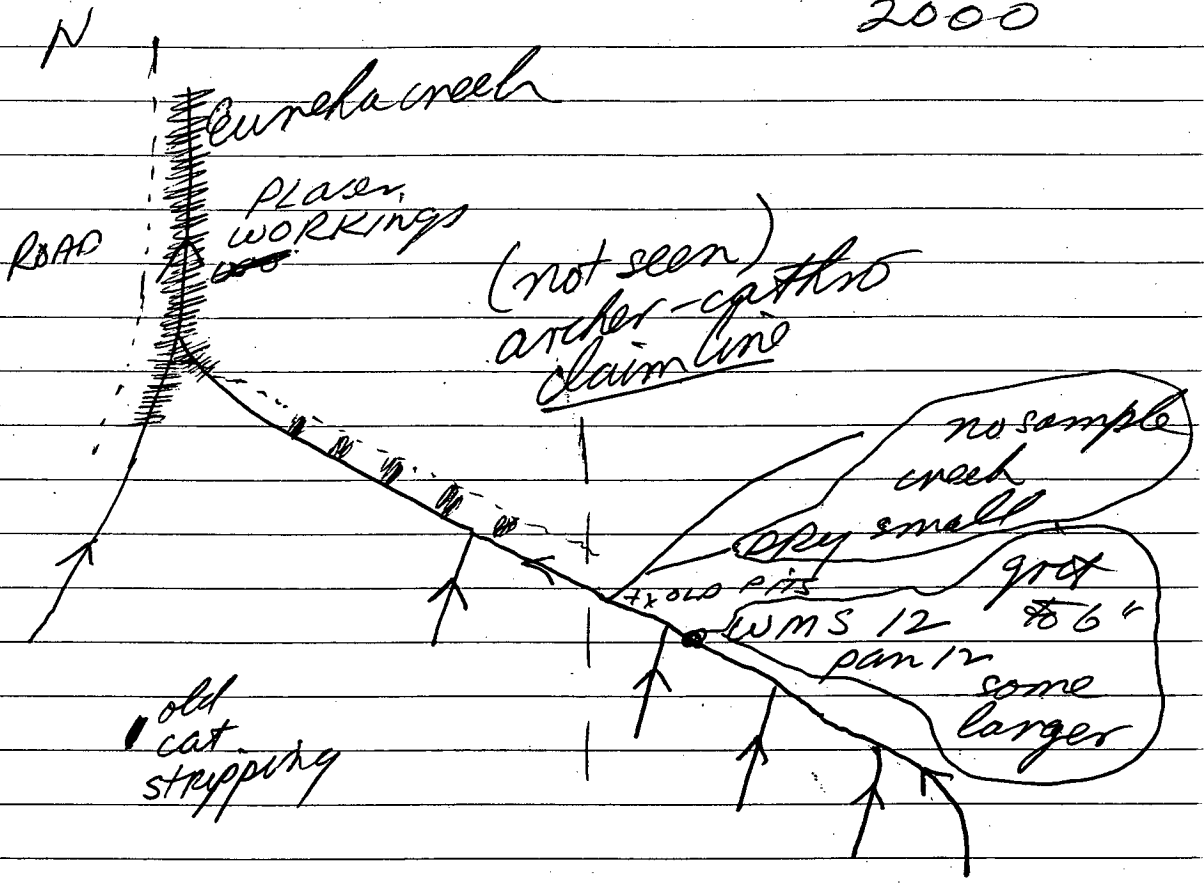 2000
N
Eureka creek
PLaser
WORKings
ROAD
(not seen)
archer-cathro
claim line
no sample
creek
DRY small
OLD PITS
WMS 12
pan 12
to 6"
some
larger
old
cat
stripping